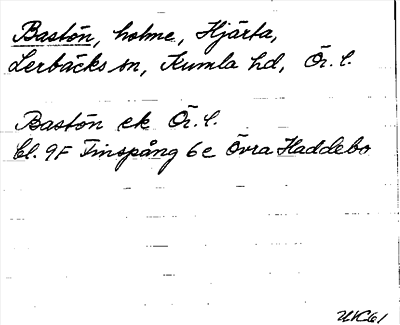 Bastön, holme, Hjärta,
Lerbäcks sn, Kumla hd, Ör. l.
Bastön ek Ör. l.
Bl. 9F Finspång 6e Övra Haddebo